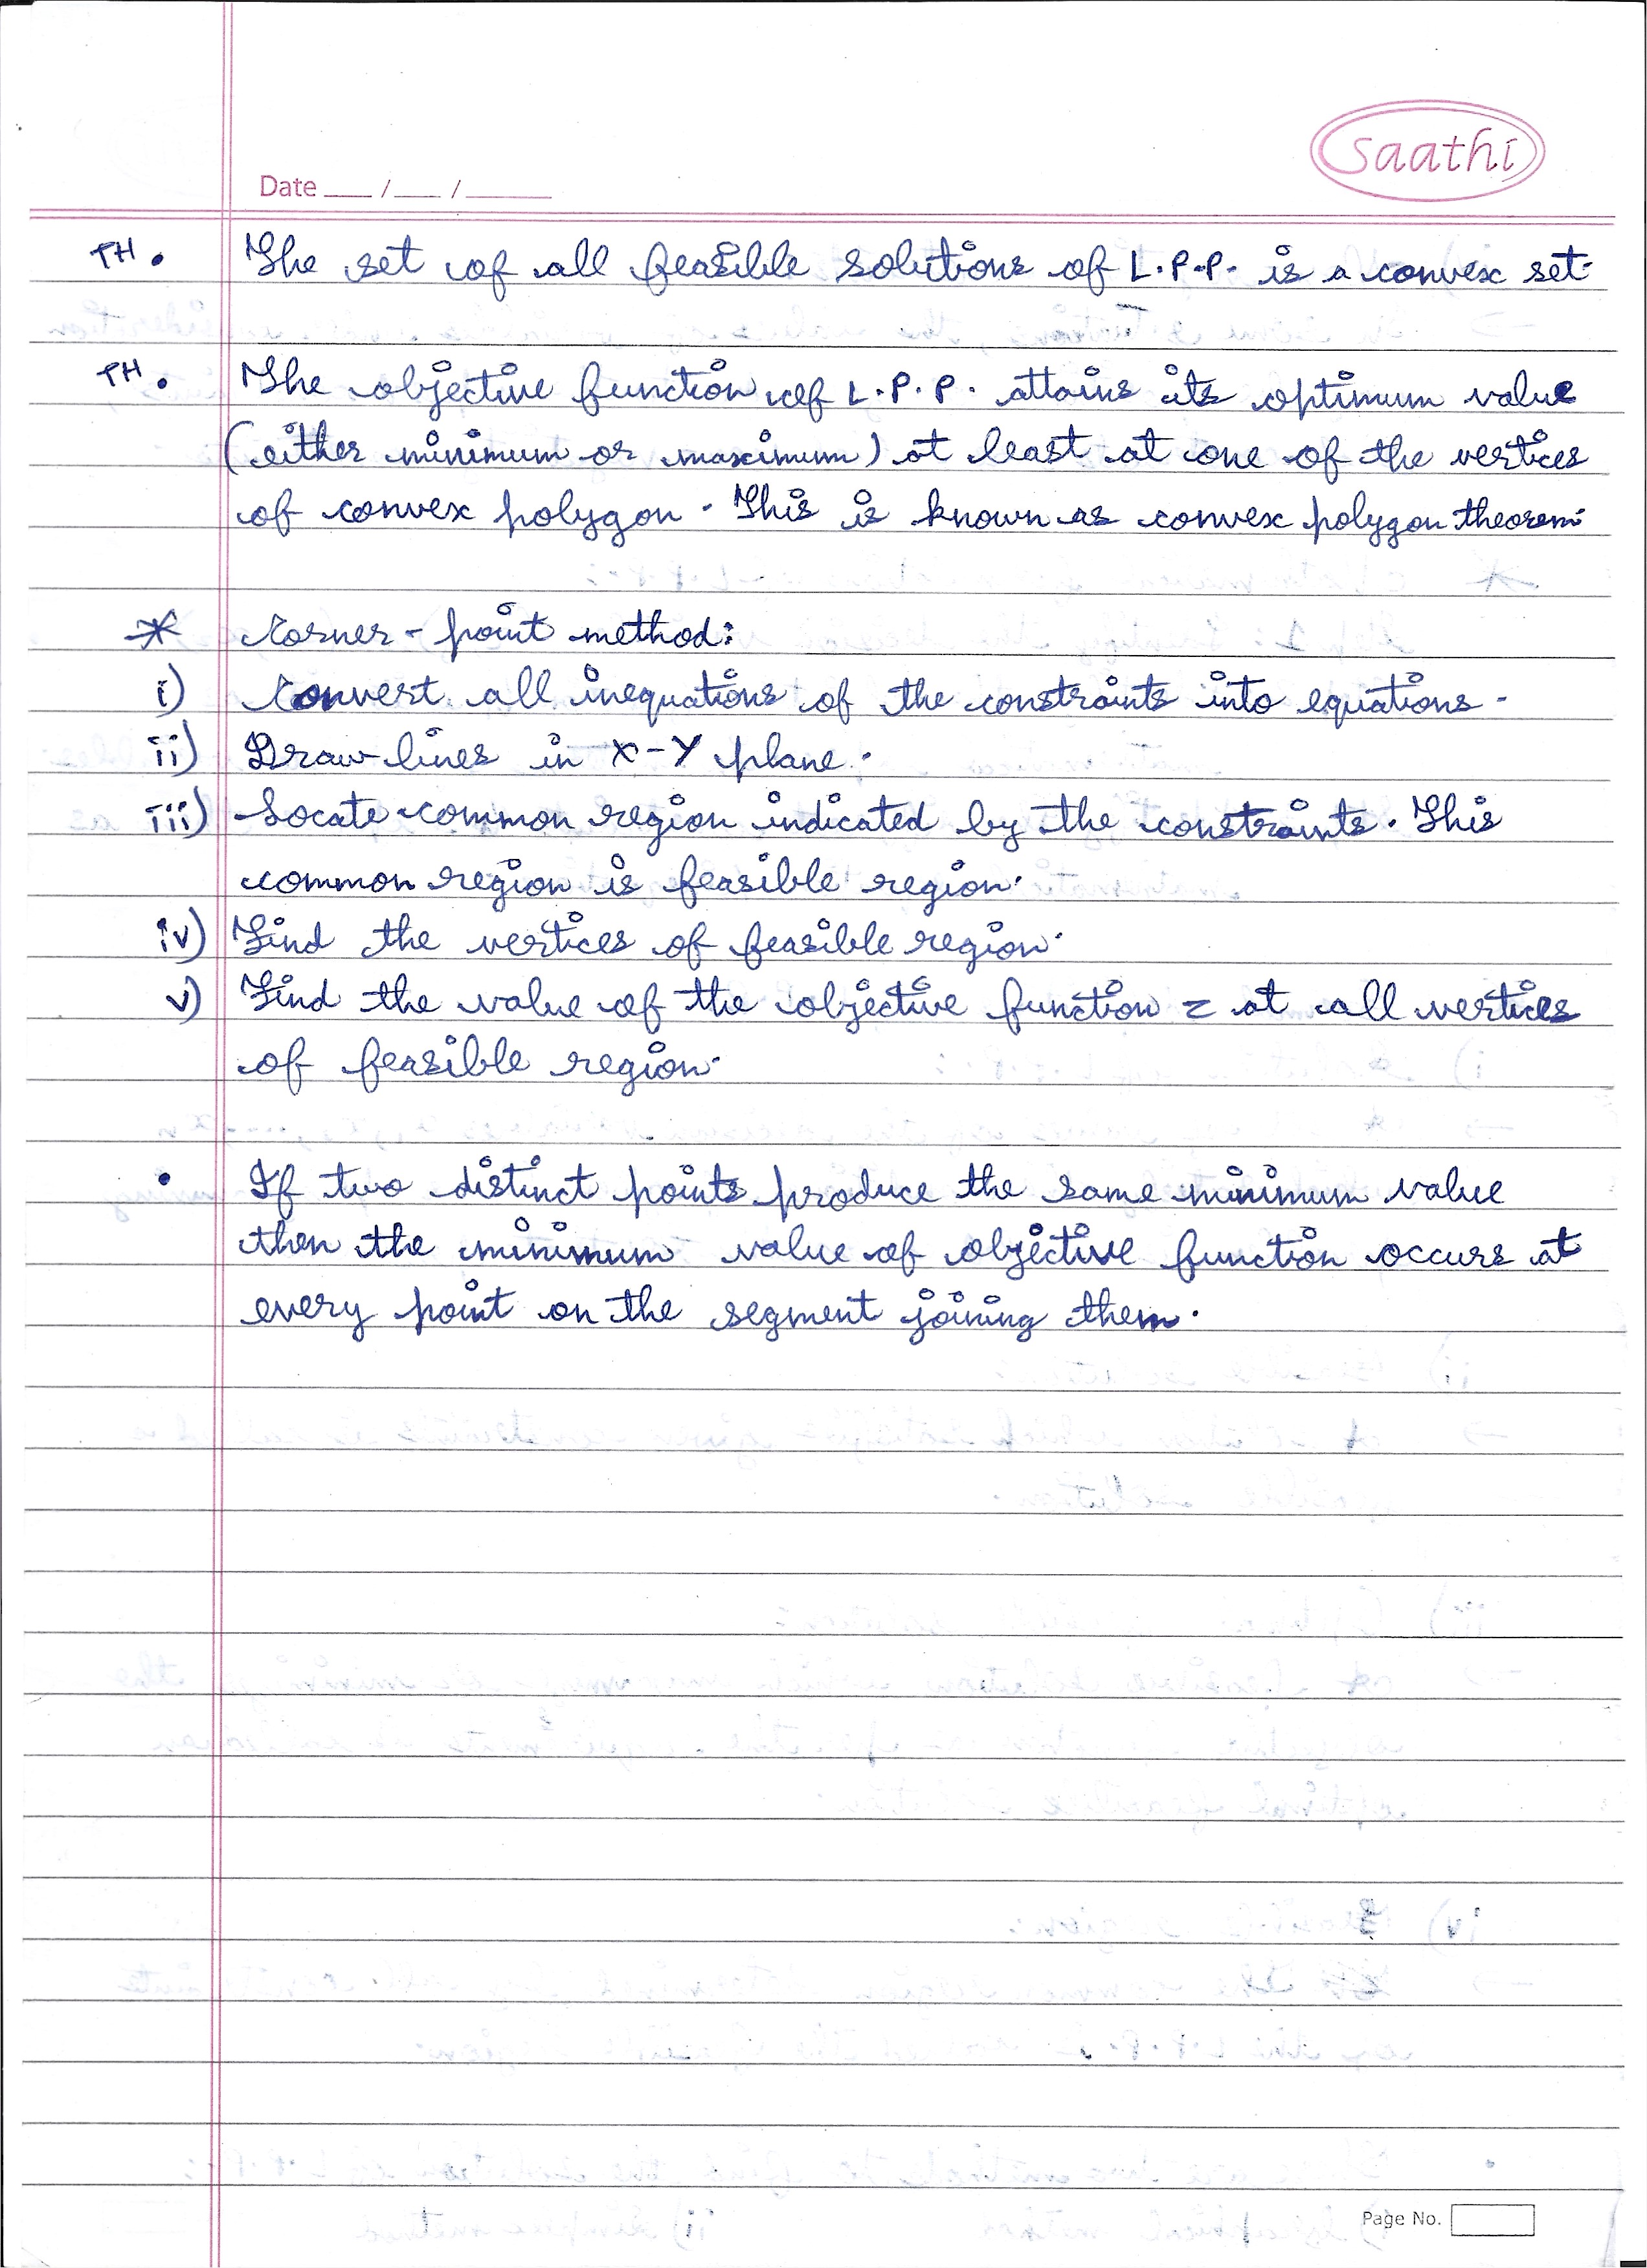 saathi
Date ___/___/_____
TH. The set of all feasible solutions of L.P.P. is a convex set.
TH. The objective function of L.P.P. attains its optimum value
(either minimum or maximum) at least at one of the vertices
of convex polygon. This is known as convex polygon theorem.
* Corner-point method:
i) Convert all inequations of the constraints into equations.
ii) Draw lines in X-Y plane.
iii) Locate common region indicated by the constraints. This
common region is feasible region.
iv) Find the vertices of feasible region.
v) Find the value of the objective function z at all vertices
of feasible region.
• If two distinct points produce the same minimum value
then the minimum value of objective function occurs at
every point on the segment joining them.
Page No.